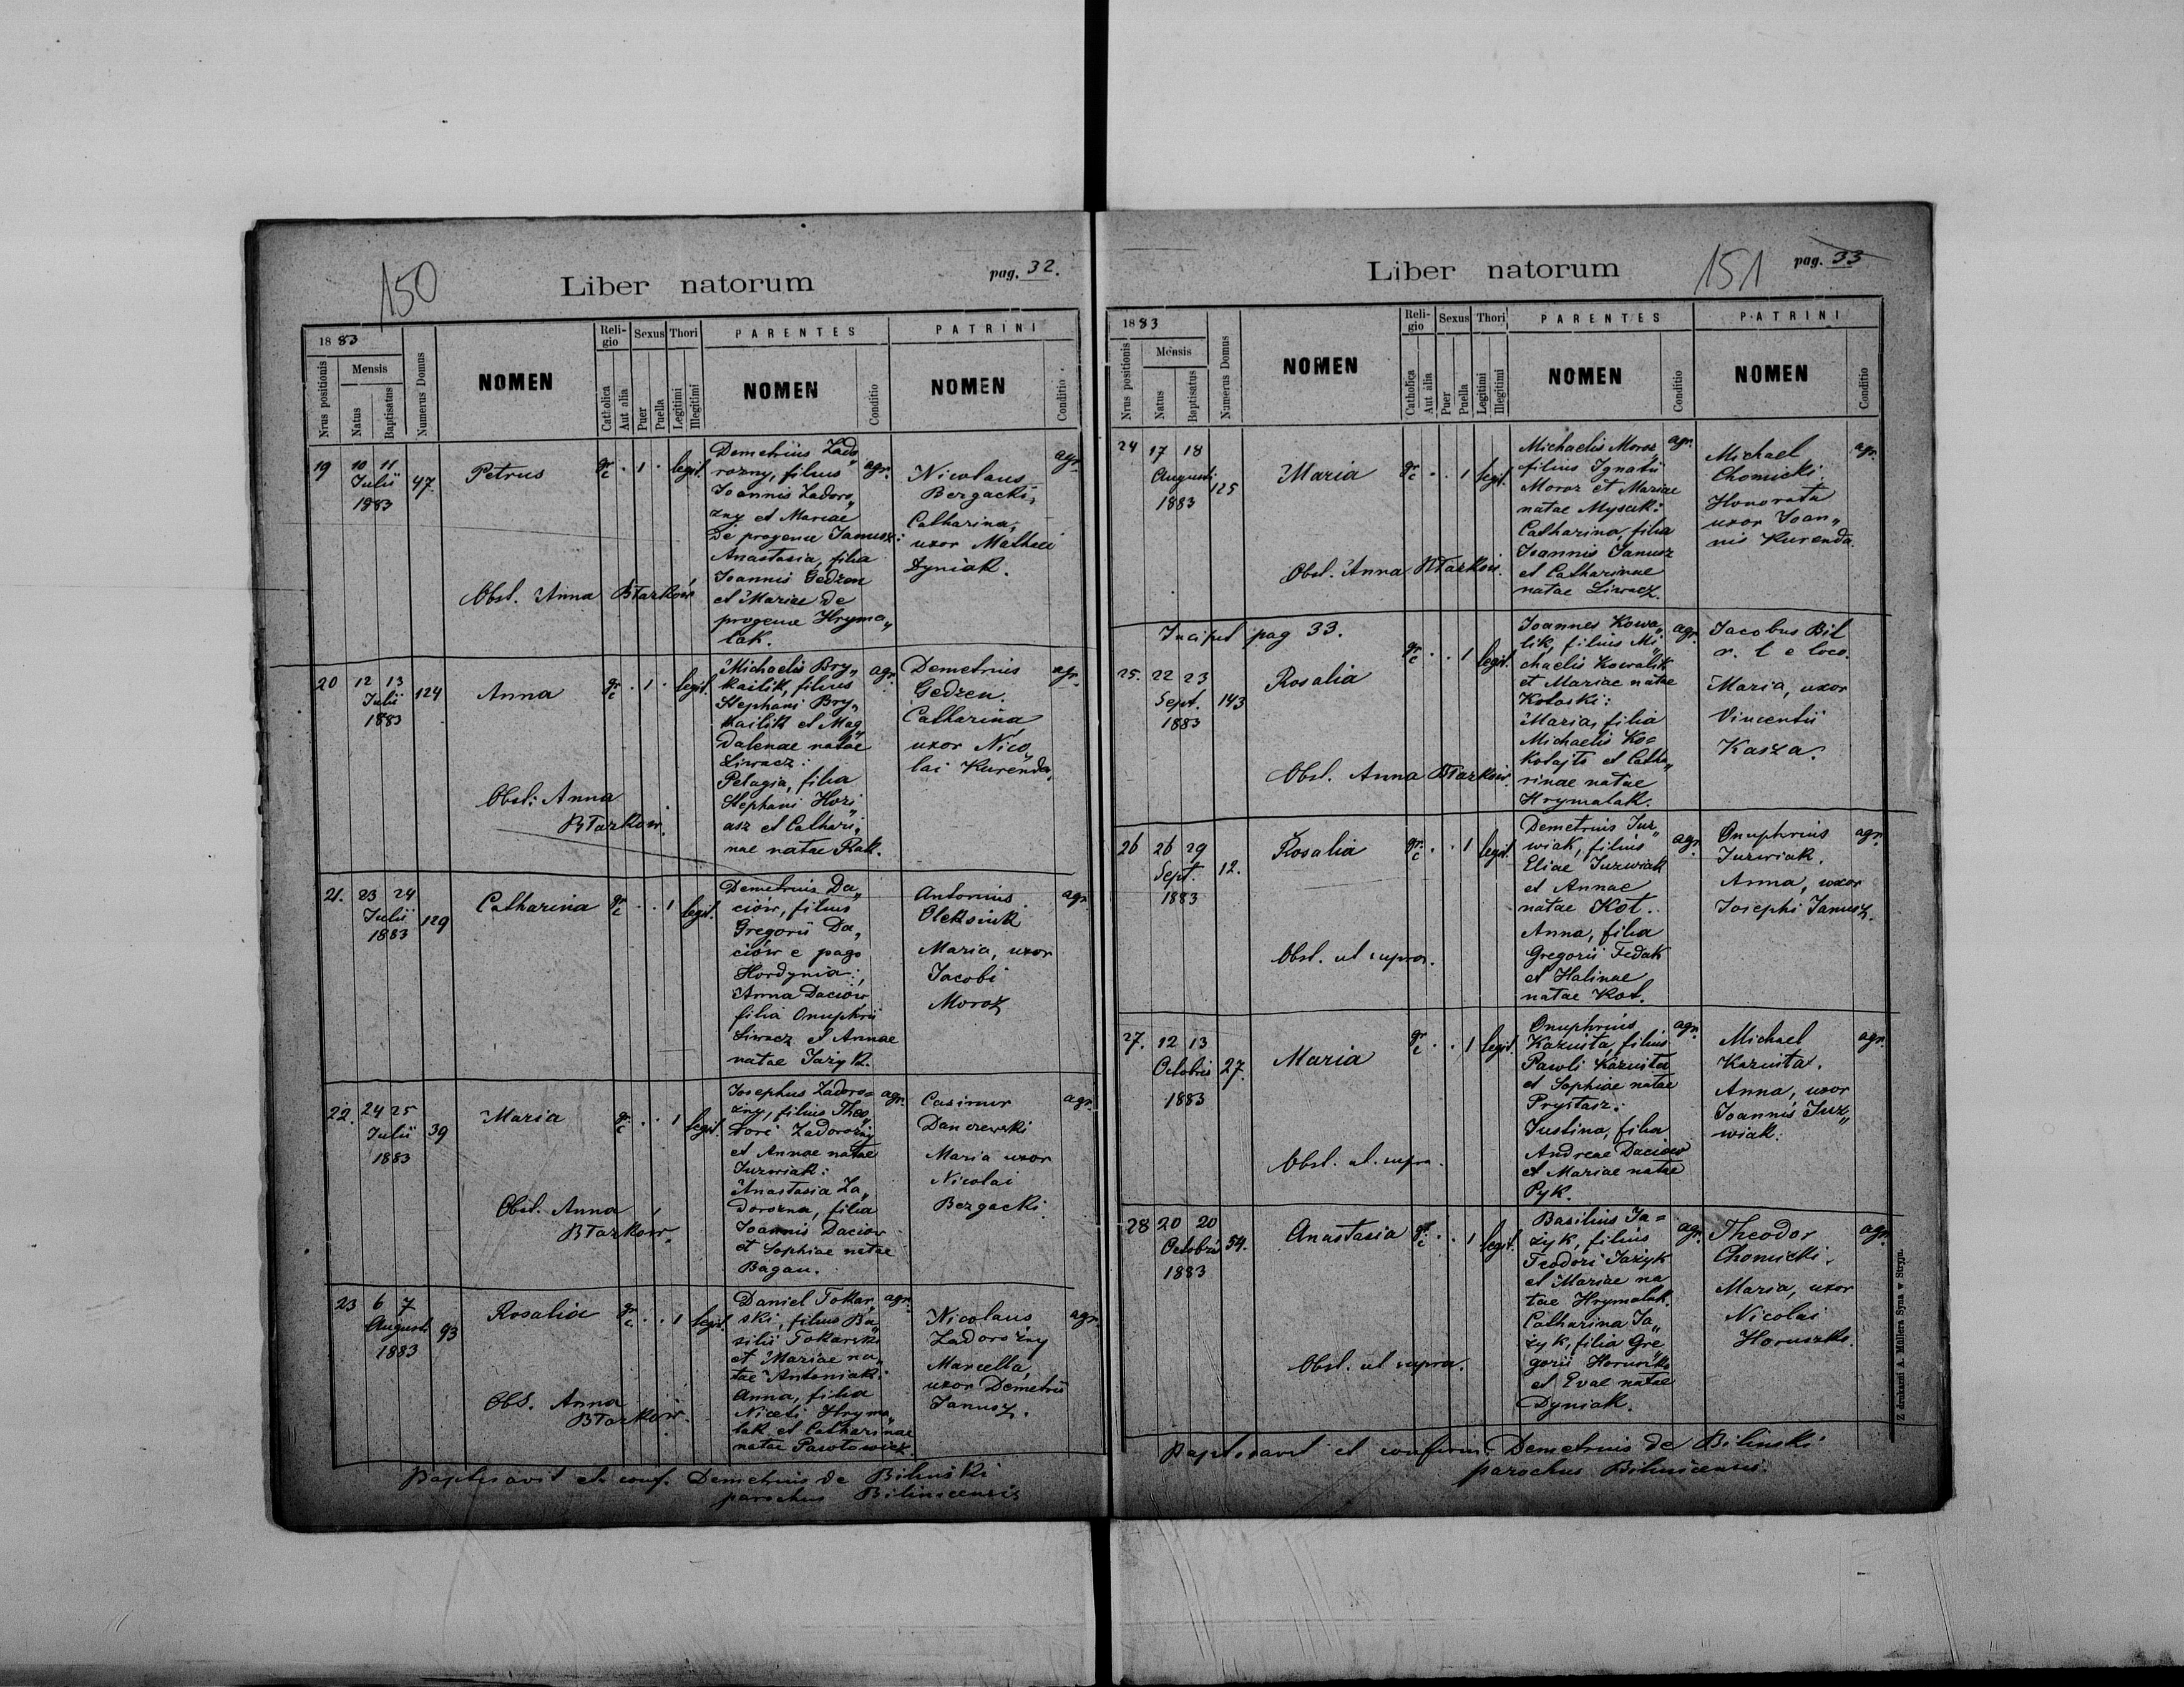 150
Liber natorum
pag. 32.
1883
Nrus positionis
Mensis
Natus
Baptisatus
Numerus Domus
NOMEN
Religio
Catholica
Aut alia
Sexus
Puer
Puella
Thori
Legitimi
Illegitimi
PARENTES
NOMEN
Conditio
PATRINI
NOMEN
Conditio
19
10 11
Julii
1883
47
Petrus
gr. c
1
legit.
Demetrius Zado„
rozny, filius
Joannis Zadoro„
zny et Mariae
De progenie Janusz:
Anastasia, filia
Joannis Gedzen
et Mariae de
progenie Hryma„
lak.
agr.
Nicolaus
Bergacki,
Catharina,
uxor Mathaei
Dyniak.
agr.
Obst. Anna Błazków
20
12 13
Julii
1883
124
Anna
gr. c
1
legit.
Michaelis Bry„
kailik, filius
Stephani Bry„
kailik et Mag„
dalenae natae
Liwacz:
Pelagia, filia
Stephani Hori„
asz et Cathari„
nae natae Rak.
agr.
Demetrius
Gedzen.
Catharina
uxor Nico„
lai Kurenda.
agr.
Obst: Anna
Błazków.
21.
23 24
Julii
1883
129
Catharina
gr. c
1
legit.
Demetrius Da„
ciów, filius
Gregorii Da„
ciów e pago
Hordynia:
Anna Daciów
filia Onuphrii
Liwacz et Annae
natae Jazyk.
Antonius
Oleksiuk
Maria, uxor
Jacobi
Moroz
agr.
22.
24 25
Julii
1883
39
Maria
gr. c
1
legit.
Josephus Zadoro=
zny, filius Theo„
dori Zadorozny
et Annae natae
Juzwiak:
Anastasia Za„
dorozna, filia
Joannis Daciow
et Sophiae natae
Bagan.
agr.
Casimir
Danczewski
Maria uxor
Nicolai
Bezgacki.
agr.
Obst. Anna
Błazków.
23
6 7
Augusti
1883
93
Rosalia
gr. c
1
legit.
Daniel Tokar„
ski, filius Ba„
silii Tokarski
et Mariae na„
tae Antoniak:
Anna, filia
Niceti Hryma„
lak et Catharinae
natae Pawłowicz.
agr.
Nicolaus
Zadorozny
Marcella,
uxor Demetrii
Janusz.
agr.
Obst. Anna
Błazków.
Baptisavit et conf. Demetrius de Biliński
parochus Bilinicensis
Liber natorum
151
pag. 33
1883
Nrus positionis
Mensis
Natus
Baptisatus
Numerus Domus
NOMEN
Religio
Catholica
Aut alia
Sexus
Puer
Puella
Thori
Legitimi
Illegitimi
PARENTES
NOMEN
Conditio
PATRINI
NOMEN
Conditio
24
17 18
Augusti
1883
125
Maria
gr. c
1
legit.
Michaelis Moroz
filius Ignatii
Moroz et Mariae
natae Mysak:
Catharina, filia
Joannis Janusz
et Catharinae
natae Liwacz.
agr.
Michael
Chomicki.
Honorata
uxor Joan„
nis Kurenda.
agr.
Obst. Anna Błazków.
Incipit pag 33.
25.
22 23
Sept.
1883
143
Rosalia
gr. c
1
legit.
Joannes Kowa„
lik, filius Mi„
chaelis Kowalik
et Mariae natae
Kołoski:
Maria, filia
Michaelis Ko=
kotajło et Catha„
rinae natae
Hrymalak.
agr.
Jacobus Bil
r. l e loco.
Maria, uxor
Vincentii
Kasza.
Obst. Anna Błazków.
26
26 29
Sept.
1883
12.
Rosalia
gr. c
1
legit.
Demetrius Juz„
wiak, filius
Eliae Juzwiak
et Annae
natae Kot.
Anna, filia
Gregorii Fedak
et Halinae
natae Kot.
agr.
Onuphrius
Juzwiak.
Anna, uxor
Josephi Janusz.
agr.
Obst. ut supra.
27.
12 13
Octobris
1883
27.
Maria
gr. c
1
legit.
Onuphrius
Kazuista, filius
Pawli Kazuista
et Sophiae natae
Prystasz:
Justina, filia
Andreae Daciow
et Mariae natae
Pyk.
agr.
Michael
Kazuista.
Anna, uxor
Joannis Juz„
wiak.
agr.
Obst. ut supra.
28
20 20
Octobris
1883
54.
Anastasia
gr. c
1
legit.
Basilius Ja=
zyk, filius
Teodori Jazyk
et Mariae na
tae Hrymalak.
Catharina Ja„
zyk, filia Gre„
gorii Horuszko
et Evae natae
Dyniak.
agr.
Theodor
Chomicki.
Maria, uxor
Nicolai
Horuszko.
agr.
Obst. ut supra.
Baptisavit et confirm. Demetrius de Biliński
parochus Bilinicensis.
Z drukarni A. Müllera Syna w Stryju.